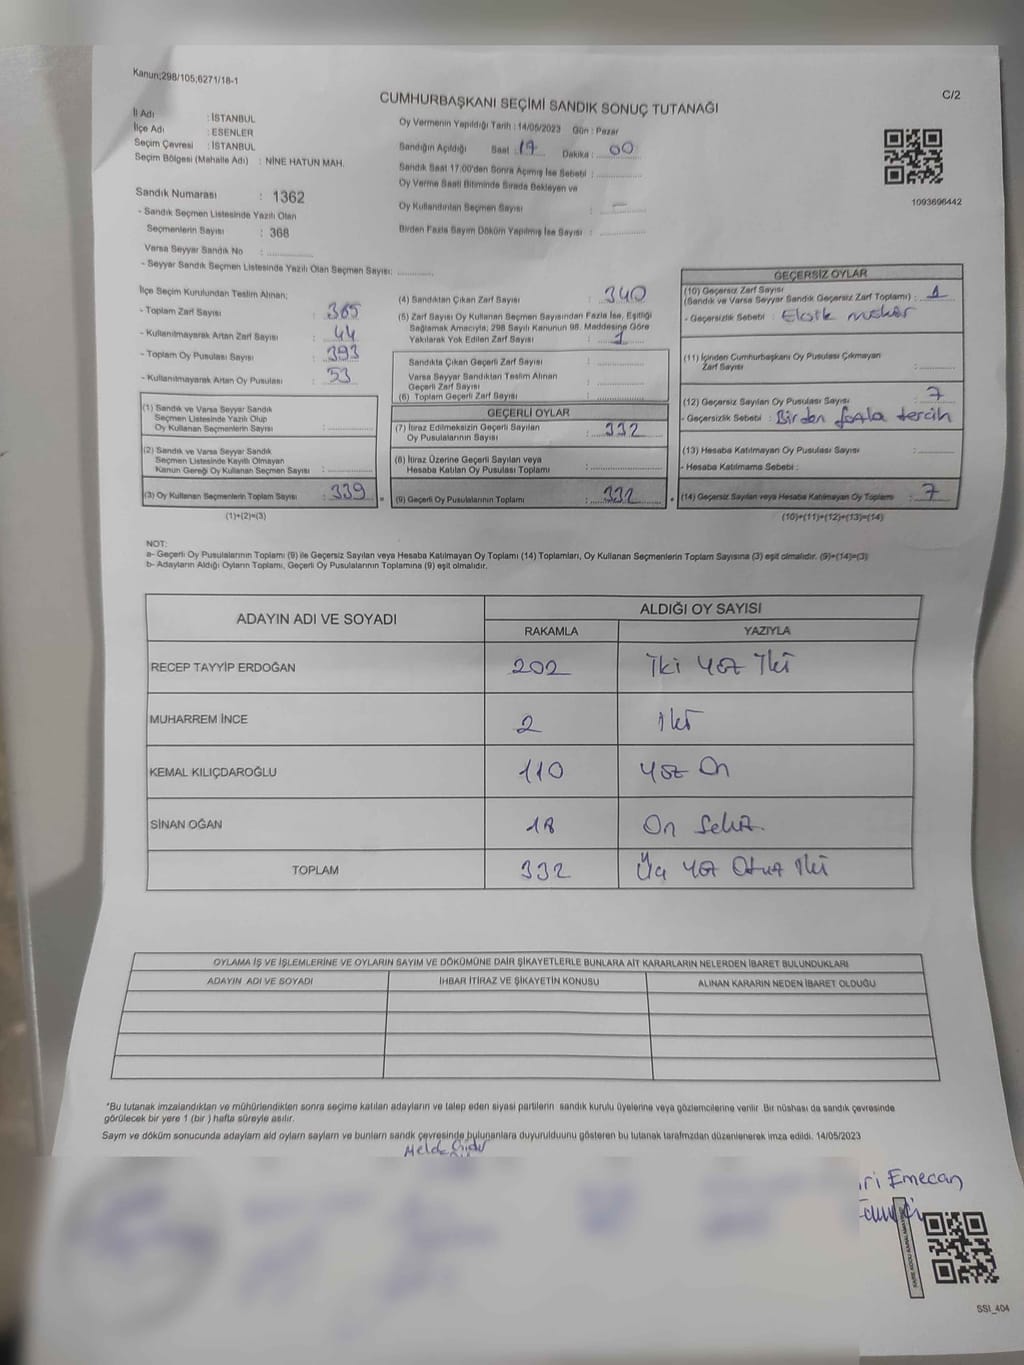 Kanun;298/105;6271/18-1
C/2
CUMHURBAŞKANI SEÇİMİ SANDIK SONUÇ TUTANAĞI
İl Adı : İSTANBUL
İlçe Adı : ESENLER
Seçim Çevresi : İSTANBUL
Seçim Bölgesi (Mahalle Adı) : NİNE HATUN MAH.
Sandık Numarası : 1362
- Sandık Seçmen Listesinde Yazılı Olan
Seçmenlerin Sayısı : 368
Varsa Seyyar Sandık No :
- Seyyar Sandık Seçmen Listesinde Yazılı Olan Seçmen Sayısı:
Oy Vermenin Yapıldığı Tarih : 14/05/2023 Gün : Pazar
Sandığın Açıldığı Saat : 17 Dakika : 00
Sandık Saat 17:00'den Sonra Açımış İse Sebebi :
Oy Verme Saati Bitiminde Sırada Bekleyen ve
Oy Kullandırılan Seçmen Sayısı : —
Birden Fazla Sayım Döküm Yapılmış İse Sayısı :
1093696442
İlçe Seçim Kurulundan Teslim Alınan;
- Toplam Zarf Sayısı : 385
- Kullanılmayarak Artan Zarf Sayısı : 44
- Toplam Oy Pusulası Sayısı : 393
- Kullanılmayarak Artan Oy Pusulası : 53
(1) Sandık ve Varsa Seyyar Sandık
Seçmen Listesinde Yazılı Olup
Oy Kullanan Seçmenlerin Sayısı :
(2) Sandık ve Varsa Seyyar Sandık
Seçmen Listesinde Kayıtlı Olmayan
Kanun Gereği Oy Kullanan Seçmen Sayısı :
(3) Oy Kullanan Seçmenlerin Toplam Sayısı : 339
(1)+(2)=(3)
(4) Sandıktan Çıkan Zarf Sayısı : 340
(5) Zarf Sayısı Oy Kullanan Seçmen Sayısından Fazla İse, Eşitliği
Sağlamak Amacıyla; 298 Sayılı Kanunun 98. Maddesine Göre
Yakılarak Yok Edilen Zarf Sayısı : 1
Sandıkta Çıkan Geçerli Zarf Sayısı :
Varsa Seyyar Sandıktan Teslim Alınan
Geçerli Zarf Sayısı :
(6) Toplam Geçerli Zarf Sayısı :
GEÇERLİ OYLAR
(7) İtiraz Edilmeksizin Geçerli Sayılan
Oy Pusulalarının Sayısı : 332
(8) İtiraz Üzerine Geçerli Sayılan veya
Hesaba Katılan Oy Pusulası Toplamı :
(9) Geçerli Oy Pusulalarının Toplamı : 332
GEÇERSİZ OYLAR
(10) Geçersiz Zarf Sayısı
(Sandık ve Varsa Seyyar Sandık Geçersiz Zarf Toplamı) : 1
- Geçersizlik Sebebi : Eksik mühür
(11) İçinden Cumhurbaşkanı Oy Pusulası Çıkmayan
Zarf Sayısı :
(12) Geçersiz Sayılan Oy Pusulası Sayısı : 7
- Geçersizlik Sebebi : Birden fazla tercih
(13) Hesaba Katılmayan Oy Pusulası Sayısı :
- Hesaba Katılmama Sebebi :
(14) Geçersiz Sayılan veya Hesaba Katılmayan Oy Toplamı : 7
(10)+(11)+(12)+(13)=(14)
NOT:
a- Geçerli Oy Pusulalarının Toplamı (9) ile Geçersiz Sayılan veya Hesaba Katılmayan Oy Toplamı (14) Toplamları, Oy Kullanan Seçmenlerin Toplam Sayısına (3) eşit olmalıdır. (9)+(14)=(3)
b- Adayların Aldığı Oyların Toplamı, Geçerli Oy Pusulalarının Toplamına (9) eşit olmalıdır.
ADAYIN ADI VE SOYADI ALDIĞI OY SAYISI
RAKAMLA YAZIYLA
RECEP TAYYİP ERDOĞAN 202 İki yüz İki
MUHARREM İNCE 2 iki
KEMAL KILIÇDAROĞLU 110 yüz On
SİNAN OĞAN 18 On Sekiz
TOPLAM 332 Üç yüz Otuz İki
OYLAMA İŞ VE İŞLEMLERİNE VE OYLARIN SAYIM VE DÖKÜMÜNE DAİR ŞİKAYETLERLE BUNLARA AİT KARARLARIN NELERDEN İBARET BULUNDUKLARI
ADAYIN ADI VE SOYADI İHBAR İTİRAZ VE ŞİKAYETİN KONUSU ALINAN KARARIN NEDEN İBARET OLDUĞU
*Bu tutanak imzalandıktan ve mühürlendikten sonra seçime katılan adayların ve talep eden siyasi partilerin sandık kurulu üyelerine veya gözlemcilerine verilir. Bir nüshası da sandık çevresinde
görülecek bir yere 1 (bir ) hafta süreyle asılır.
Sayım ve döküm sonucunda adaylarn ald oylarn saylarn ve bunlarn sandk çevresinde bulunanlara duyurulduunu gösteren bu tutanak tarafmzdan düzenlenerek imza edildi. 14/05/2023
ri Emecan
SSI_404